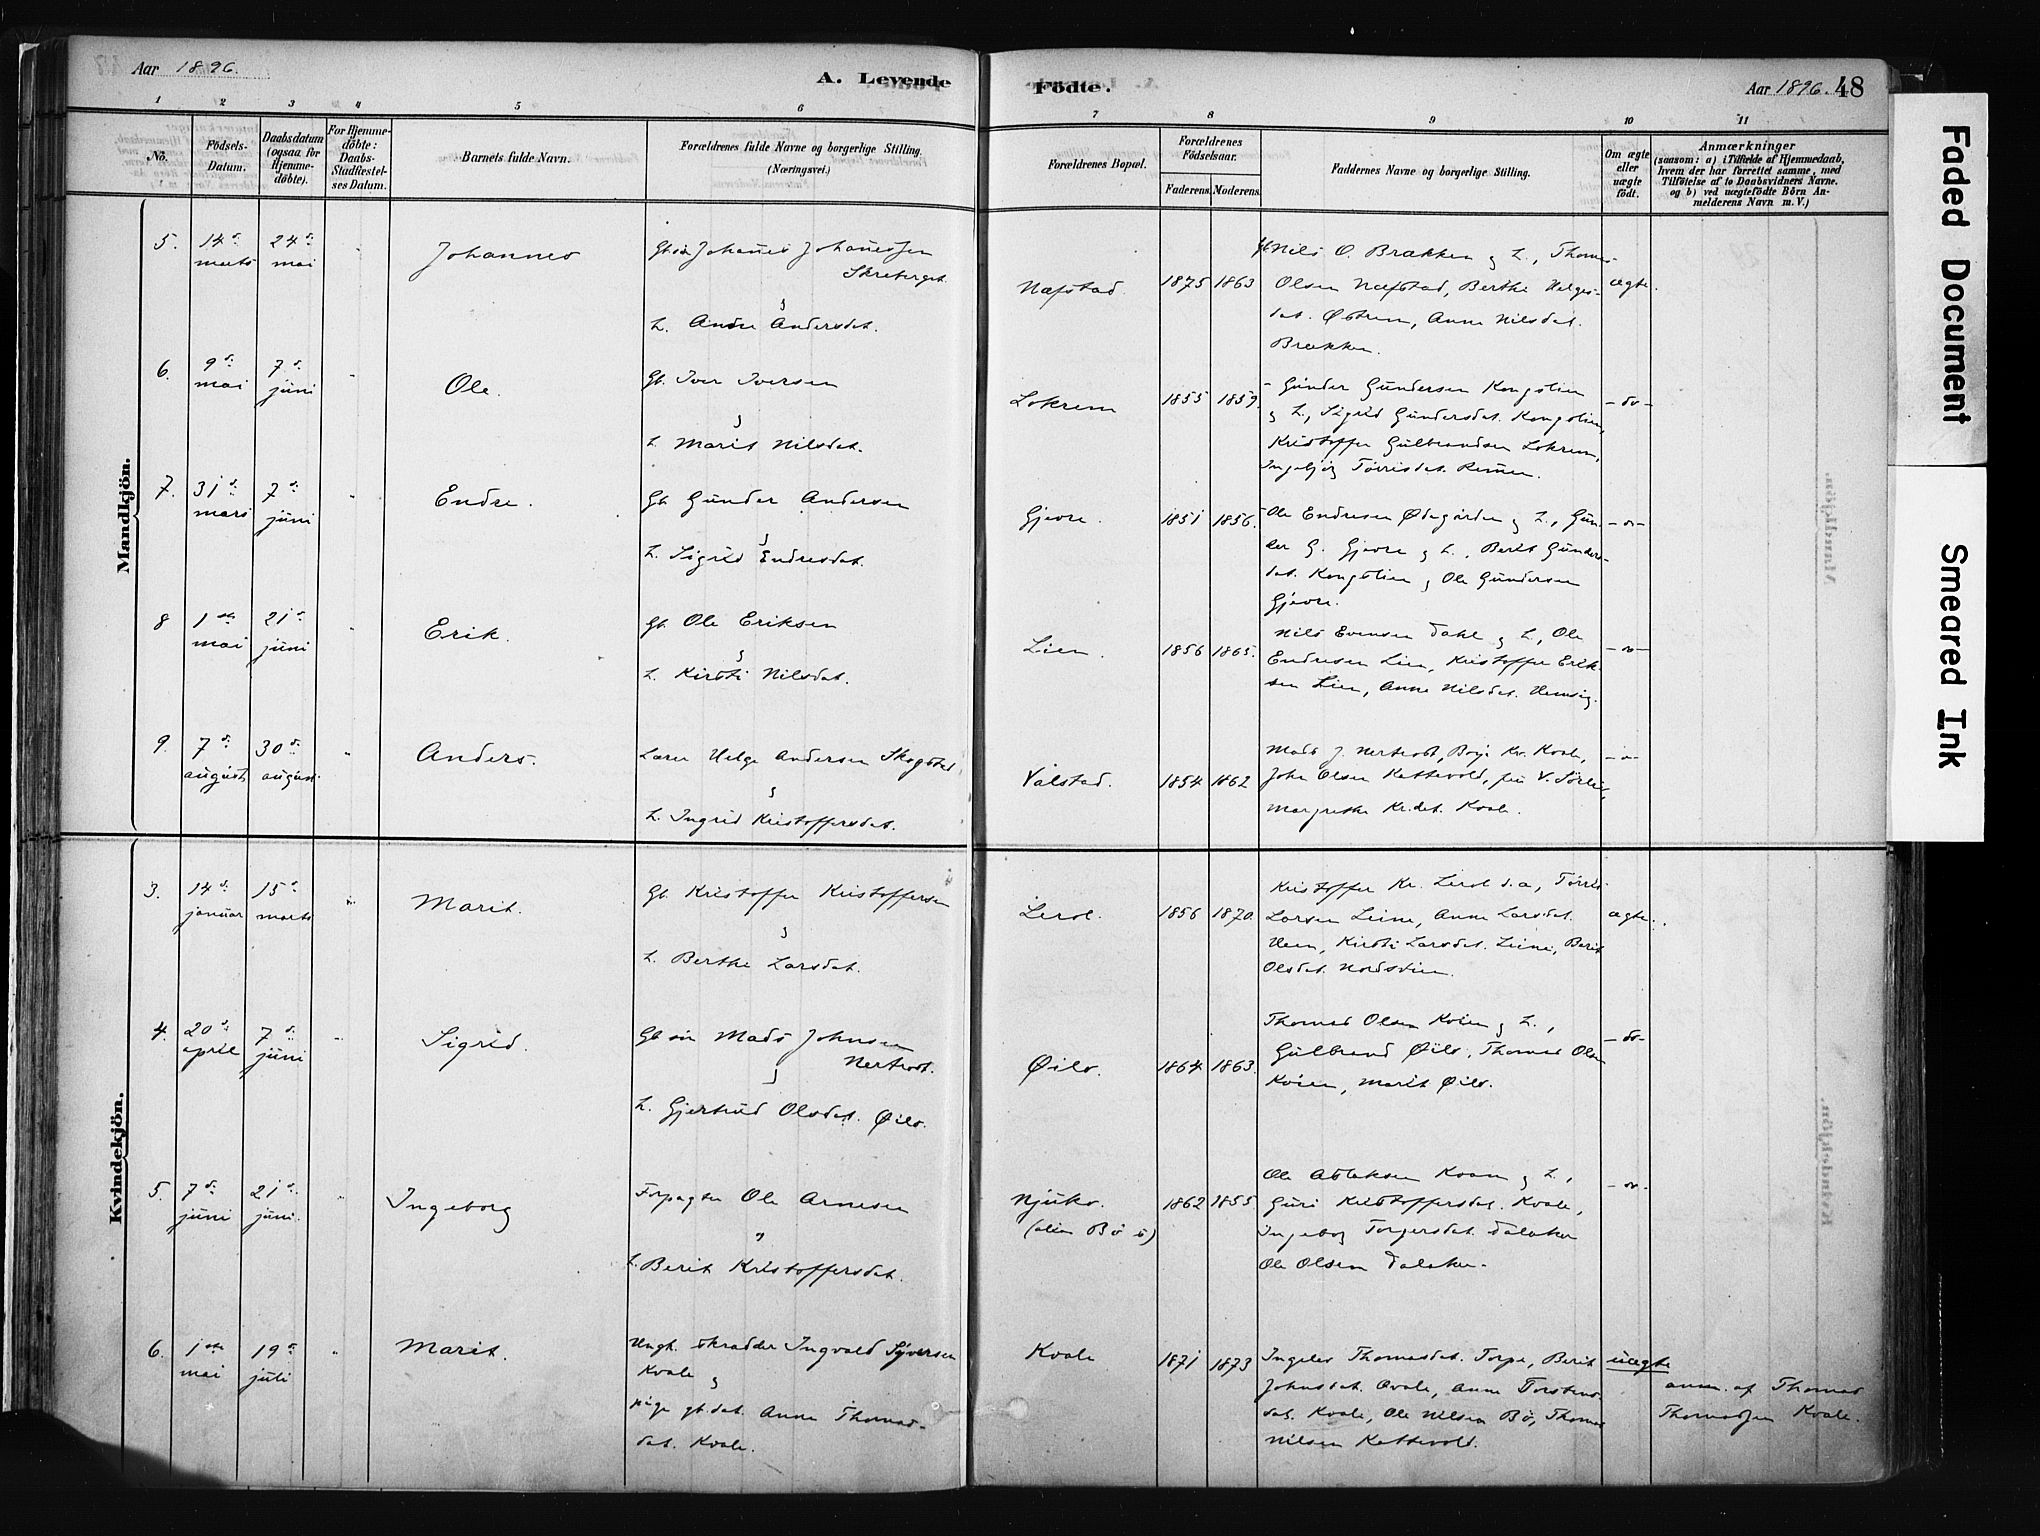 Aar 1896.
A. Levende
Födte.
Aar 1896. 48
1 2 3 4 5 6 7 8 9 10 11
No.
Födsels-Datum.
Daabsdatum (ogsaa for Hjemme-döbte).
For Hjemme-döbte: Daabs-Stadfæstel-ses Datum.
Barnets fulde Navn.
Forældrenes fulde Navne og borgerlige Stilling. (Næringsvei.)
Forældrenes Bopæl.
Forældrenes Födselsaar.
Faderens. Moderens.
Faddernes Navne og borgerlige Stilling.
Om ægte eller uægte födt.
Anmærkninger
(saasom: a) i Tilfælde af Hjemmedaab,
hvem der har forrettet samme, med
Tilföielse af to Daabsvidners Navne.
og b) ved uægtefödte Börn An-
melderens Navn m. V.)
Mandkjön.
5. 14de marts 24de mai Johannes
Johannes Johannessen
Skreberget
&
h. Andre Andersdat.
Næfstad 1875 1863
Nils O. Brækken & h., Thomas
Olsen Næfstad, Berthe Helges-
dat. Østrem, Anne Nilsdat.
Brækken.
ægte.
6. 9de mai 7de juni Ole.
Gb. Iver Iversen
&
h. Marit Nilsdat.
Lokrem 1855 1859.
Gunder Gundersen Kongslien
& h., Sigrid Gundersdat. Kongslien,
Kristoffer Gulbrandsen Lokrem,
Ingebjörg Törrisdat.
- do -
7. 31de mars 7de juni Endre.
Gb. Gunder Andersen
&
h. Sigrid Endresdat.
Gjevre. 1851 1856.
Ole Endresen Ødegården & h., Gun-
der G. Gjevre & h., Berit Gunders-
dat. Kongslien & Ole Gundersen
Gjevre.
- do -
8 1ste mai 21de juni Erik.
Gb. Ole Eriksen
&
h. Kirsti Nilsdat.
Lien. 1856 1865.
Nils Evensen Dahl & h., Ole
Endresen Lien, Kristoffer Erik-
sen Lien, Anne Nilsdat. Hemsing.
- do -
9. 7de august 30de august Anders.
Lærer Helge Andersen Skogstad
&
h. Ingrid Kristoffersdat.
Valstad. 1854 1862
Mads J. Nertrost, Kr. Kvale,
John Olsen Kattevold, fru V. Sörlie,
Margrethe Kr.dat. Kvale.
- do -
Kvindekjön.
3. 14de januar 15de marts Marit.
Gb. Kristoffer Kristoffersen
&
h. Berthe Larsdat.
Lerol. 1856 1870.
Kristoffer Kr. Lerol d.a., Törris
Larsen Leine, Anne Larsdat.
Hem, Kirsti Larsdat. Leine, Berit
Olsdat. Nordsvien.
ægte.
4. 20de april 7de juni Sigrid.
Gb sön Mads Johnsen
Nertrost.
&
h. Gjertrud Olsdat. Øilo.
Øilo. 1864 1863.
Thomas Olsen Kvien & h.,
Gulbrand Øilo, Thomas Olsen
Kvien, Marit Øilo.
- do -
5. 7de juni 21de juni. Ingeborg
Forpagter Ole Arnesen
&
h. Berit Kristoffersdat.
Njuko.
1862 1855
Ole Aslaksen Kvam & h.,
Guri Kristoffersdat. Kvale,
Ingeborg Torgersdat. Dalaker
Ole Olsen Dalaker.
- do -
6. 1ste mai 19de juli Marit.
Ungk. skrædder Ingvald Syversen
Kvale &
pige gb.dat. Anne Thomas-
dat. Kvale.
Kvale 1871 1873
Ingeleiv Thomasdat. Torpe, Berit
Johnsdat. Kvale, Anne Torstens-
dat. Kvale, Ole Nilsen Bö, Thomas
Nilsen Kattevold.
uægte
anm. af Thomas
Thomassen Kvale.
Faded Document
Smeared Ink